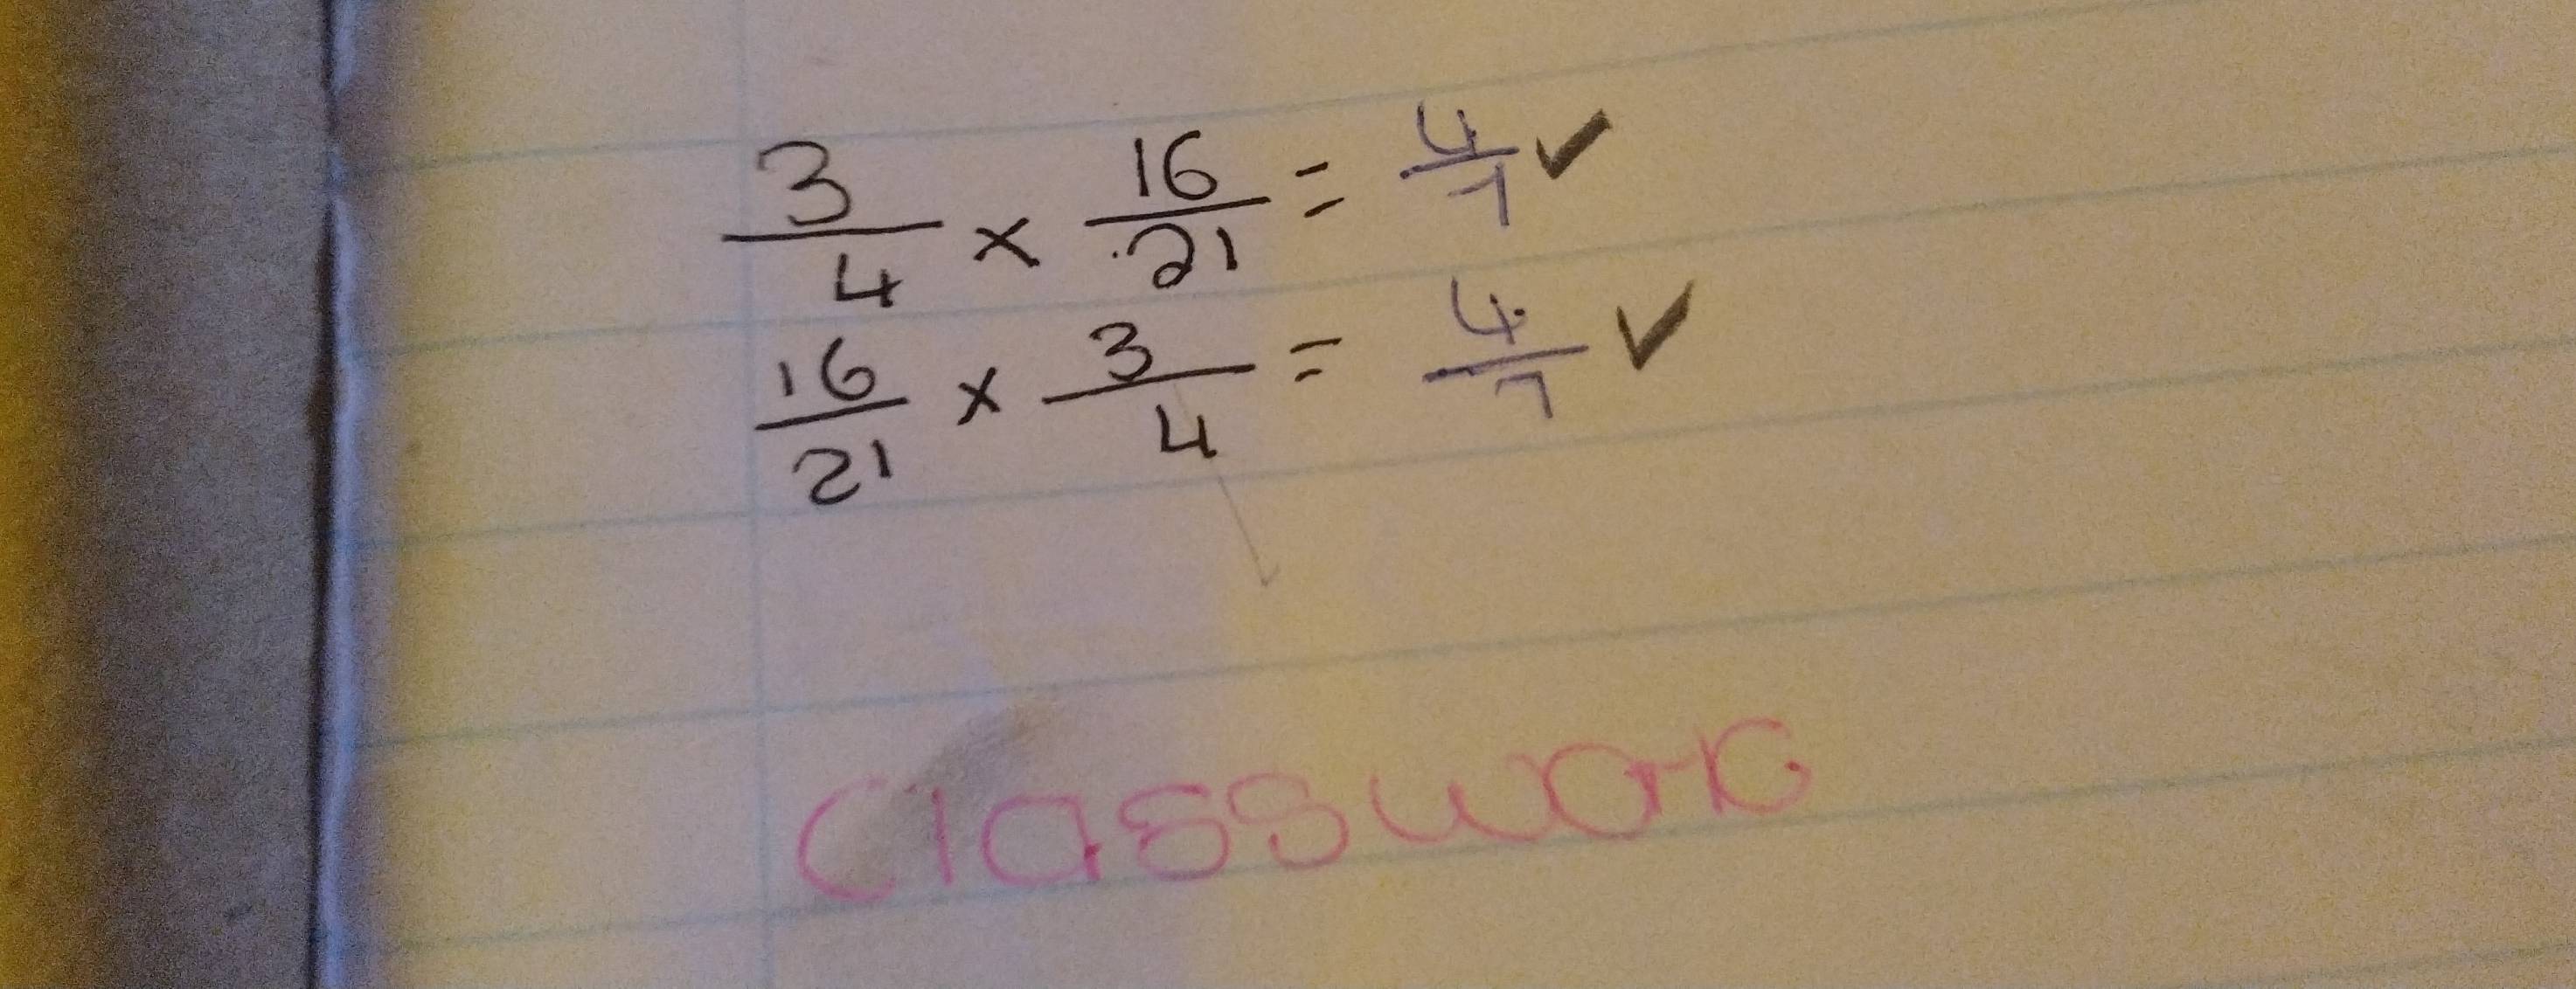 3/4 × 16/21 = 4/7 ✓
16/21 × 3/4 = 4/7 ✓
Classwork